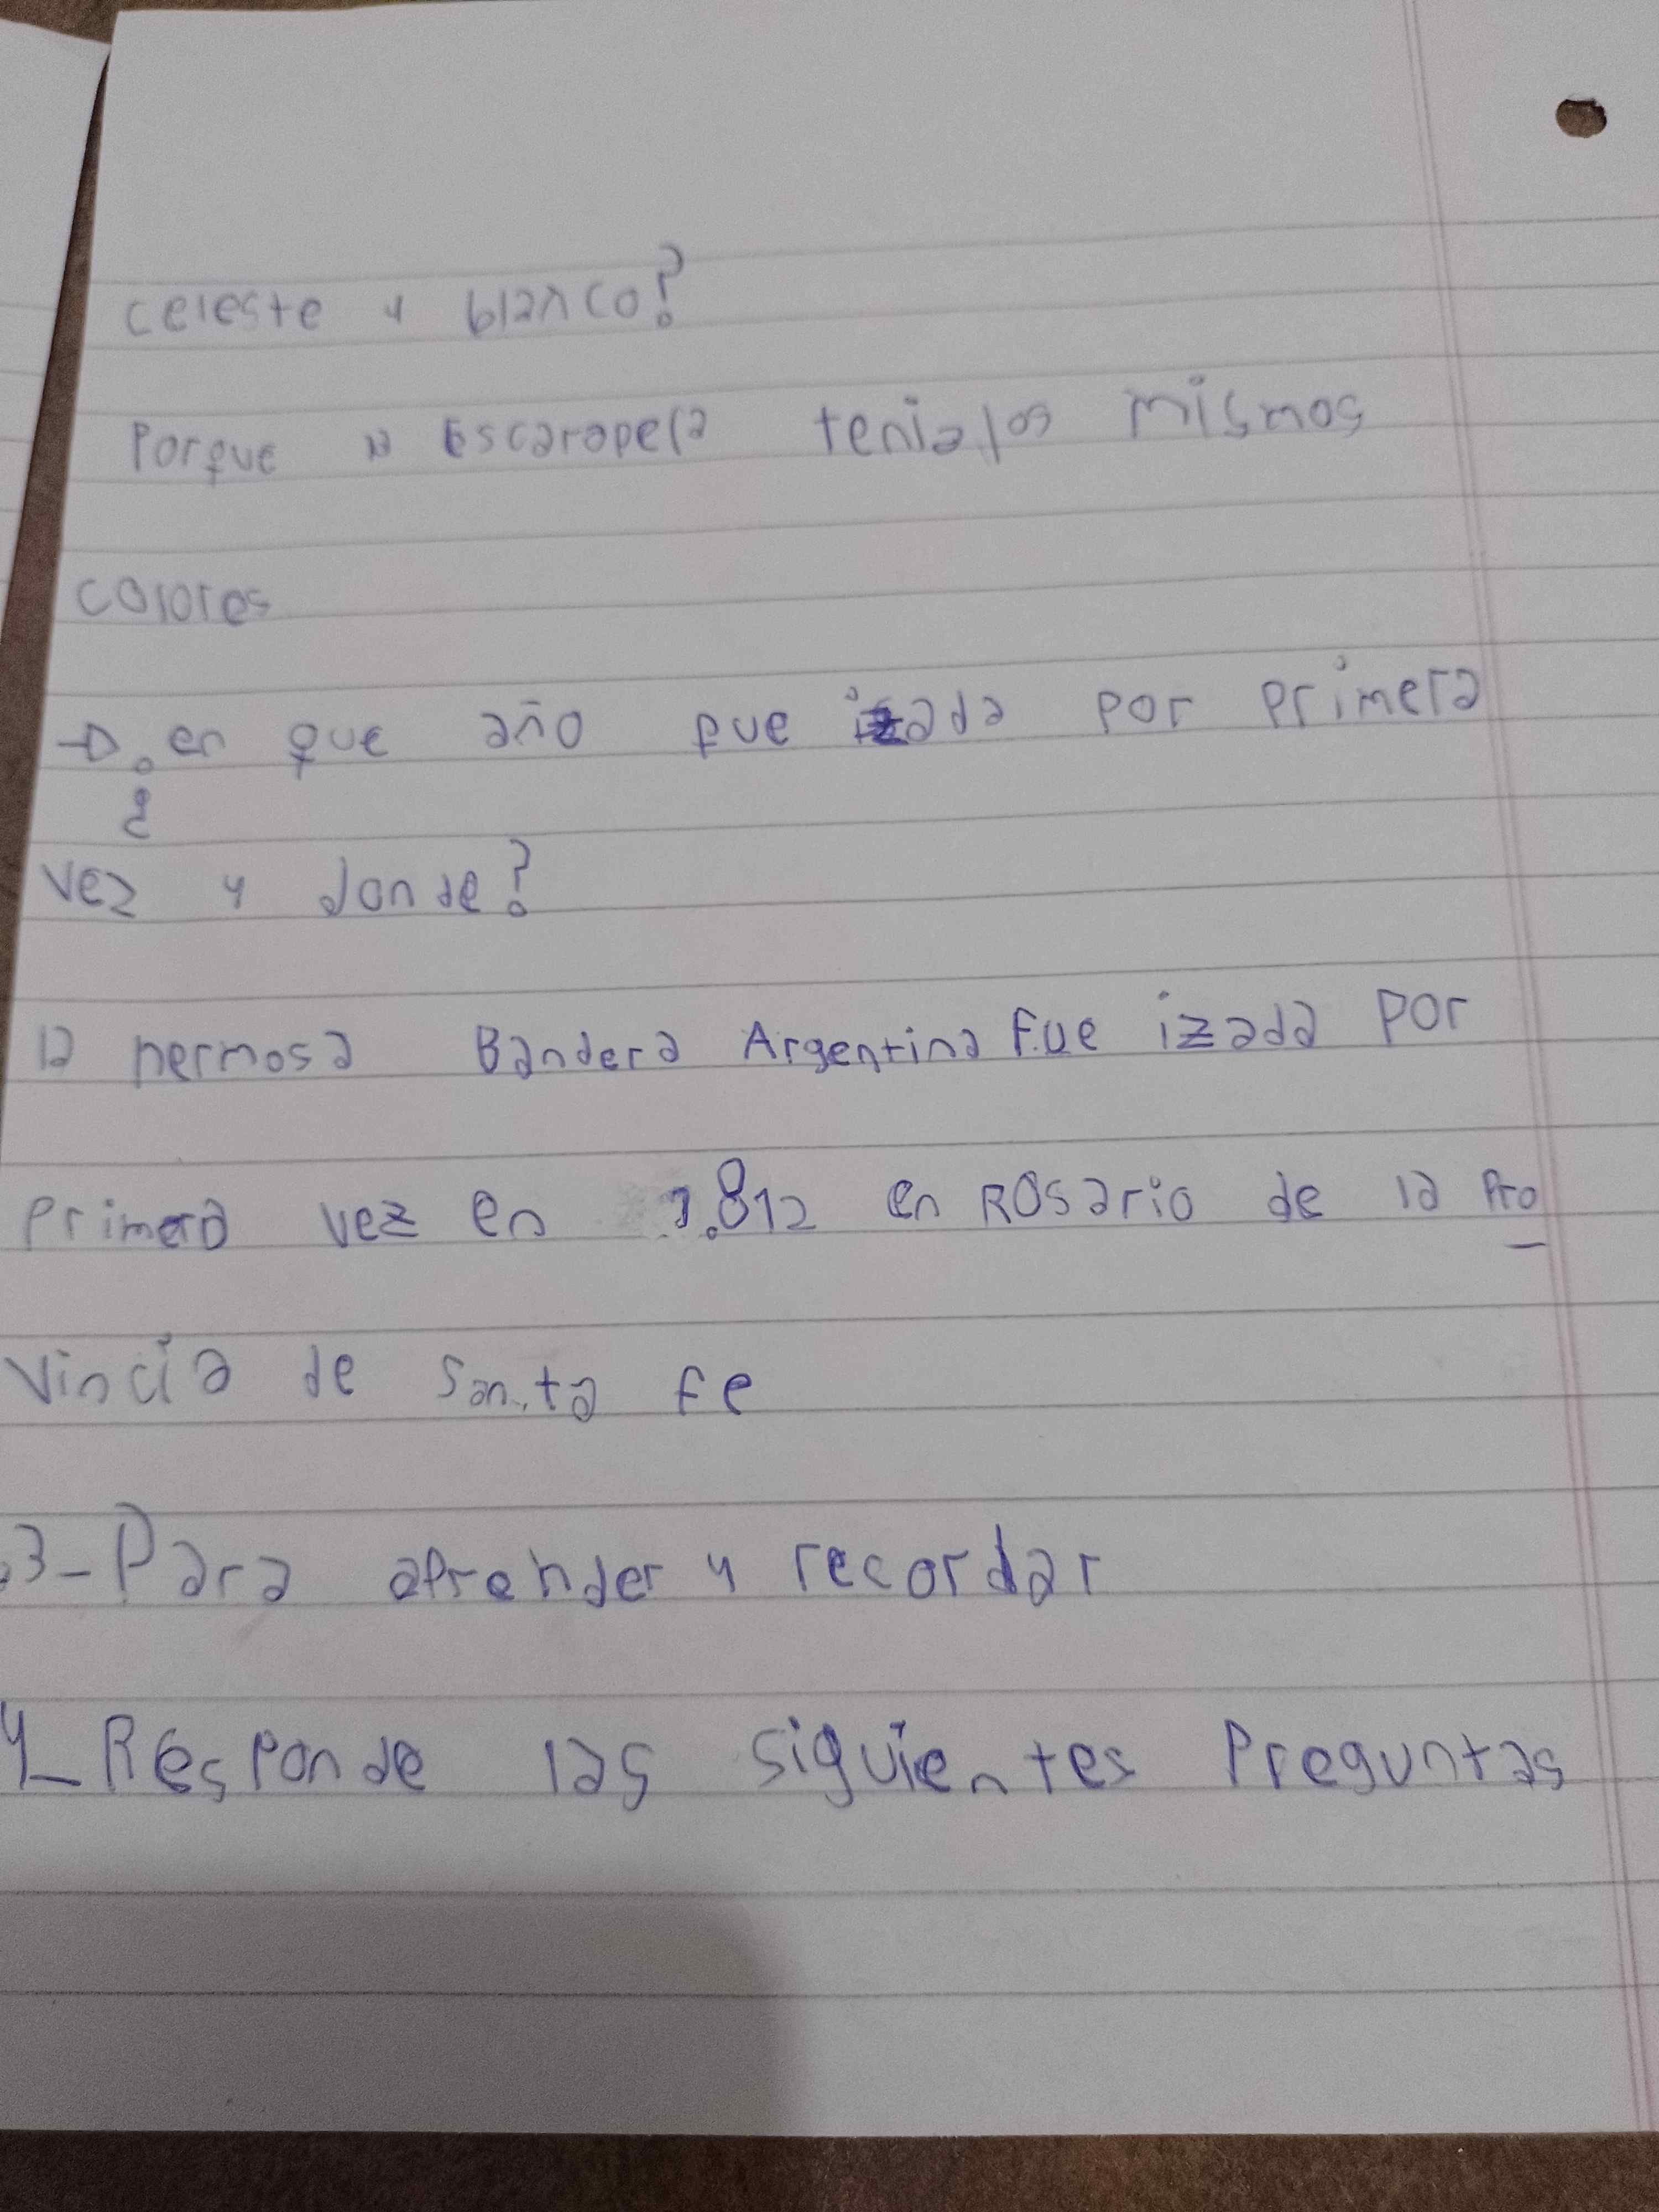 celeste y blanco?
Porque la Escarapela tenia los mismos
colores
→ ¿en que año fue izada por primera
vez y donde?
la hermosa Bandera Argentina fue izada por
primera vez en 1.812 en ROsario de la Pro
vincia de Santa fe
3-Para aprender y recordar
4_Responde las siguientes Preguntas